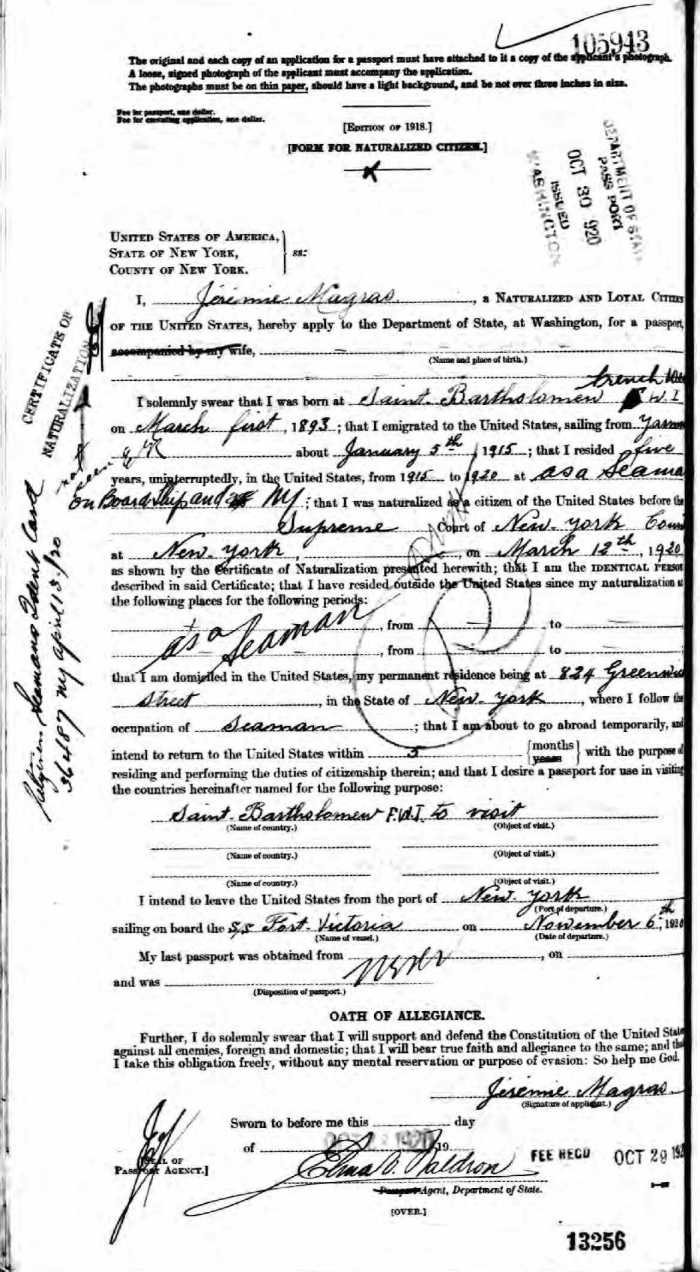 105943
The original and each copy of an application for a passport must have attached to it a copy of the applicant's photograph.
A loose, signed photograph of the applicant must accompany the application.
The photographs must be on thin paper, should have a light background, and be not over three inches in size.
Fee for passport, one dollar.
Fee for executing application, one dollar.
[EDITION OF 1918.]
[FORM FOR NATURALIZED CITIZEN.]
DEPARTMENT OF STATE
PASSPORT
OCT 30 1920
ISSUED
WASHINGTON
UNITED STATES OF AMERICA,
STATE OF NEW YORK, ss:
COUNTY OF NEW YORK.
I, Jérémie Magras, a NATURALIZED AND LOYAL CITIZEN
OF THE UNITED STATES, hereby apply to the Department of State, at Washington, for a passport,
accompanied by my wife,
(Name and place of birth.)
French
I solemnly swear that I was born at Saint Bartholomew W I
on March first, 1893; that I emigrated to the United States, sailing from
about January 5th, 1915; that I resided five
years, uninterruptedly, in the United States, from 1915 to 1920 at as a Seaman
on Board Ship and NY; that I was naturalized as a citizen of the United States before the
Supreme Court of New York
at New York, on March 12th, 1920
as shown by the Certificate of Naturalization presented herewith; that I am the IDENTICAL PERSON
described in said Certificate; that I have resided outside the United States since my naturalization at
the following places for the following periods:
, from to
as a Seaman, from to
that I am domiciled in the United States, my permanent residence being at 824 Greenwich
Street, in the State of New York, where I follow the
occupation of Seaman; that I am about to go abroad temporarily, and
intend to return to the United States within 5 {months years} with the purpose of
residing and performing the duties of citizenship therein; and that I desire a passport for use in visiting
the countries hereinafter named for the following purpose:
Saint Bartholomew F.W.I. to visit
(Name of country.) (Object of visit.)
(Name of country.) (Object of visit.)
(Name of country.) (Object of visit.)
I intend to leave the United States from the port of New York
(Port of departure.)
sailing on board the S/S Fort Victoria on November 6th, 1920
(Name of vessel.) (Date of departure.)
My last passport was obtained from never, on
and was
(Disposition of passport.)
OATH OF ALLEGIANCE.
Further, I do solemnly swear that I will support and defend the Constitution of the United States
against all enemies, foreign and domestic; that I will bear true faith and allegiance to the same; and that
I take this obligation freely, without any mental reservation or purpose of evasion: So help me God.
Jérémie Magras
(Signature of applicant.)
Sworn to before me this day
of 19
[SEAL OF
PASSPORT AGENCY.]
Passport Agent, Department of State.
FEE RECD OCT 29 192
[OVER.]
13256
CERTIFICATE OF
NATURALIZATION
Seamans Ident Card
36487 NY April 13/20